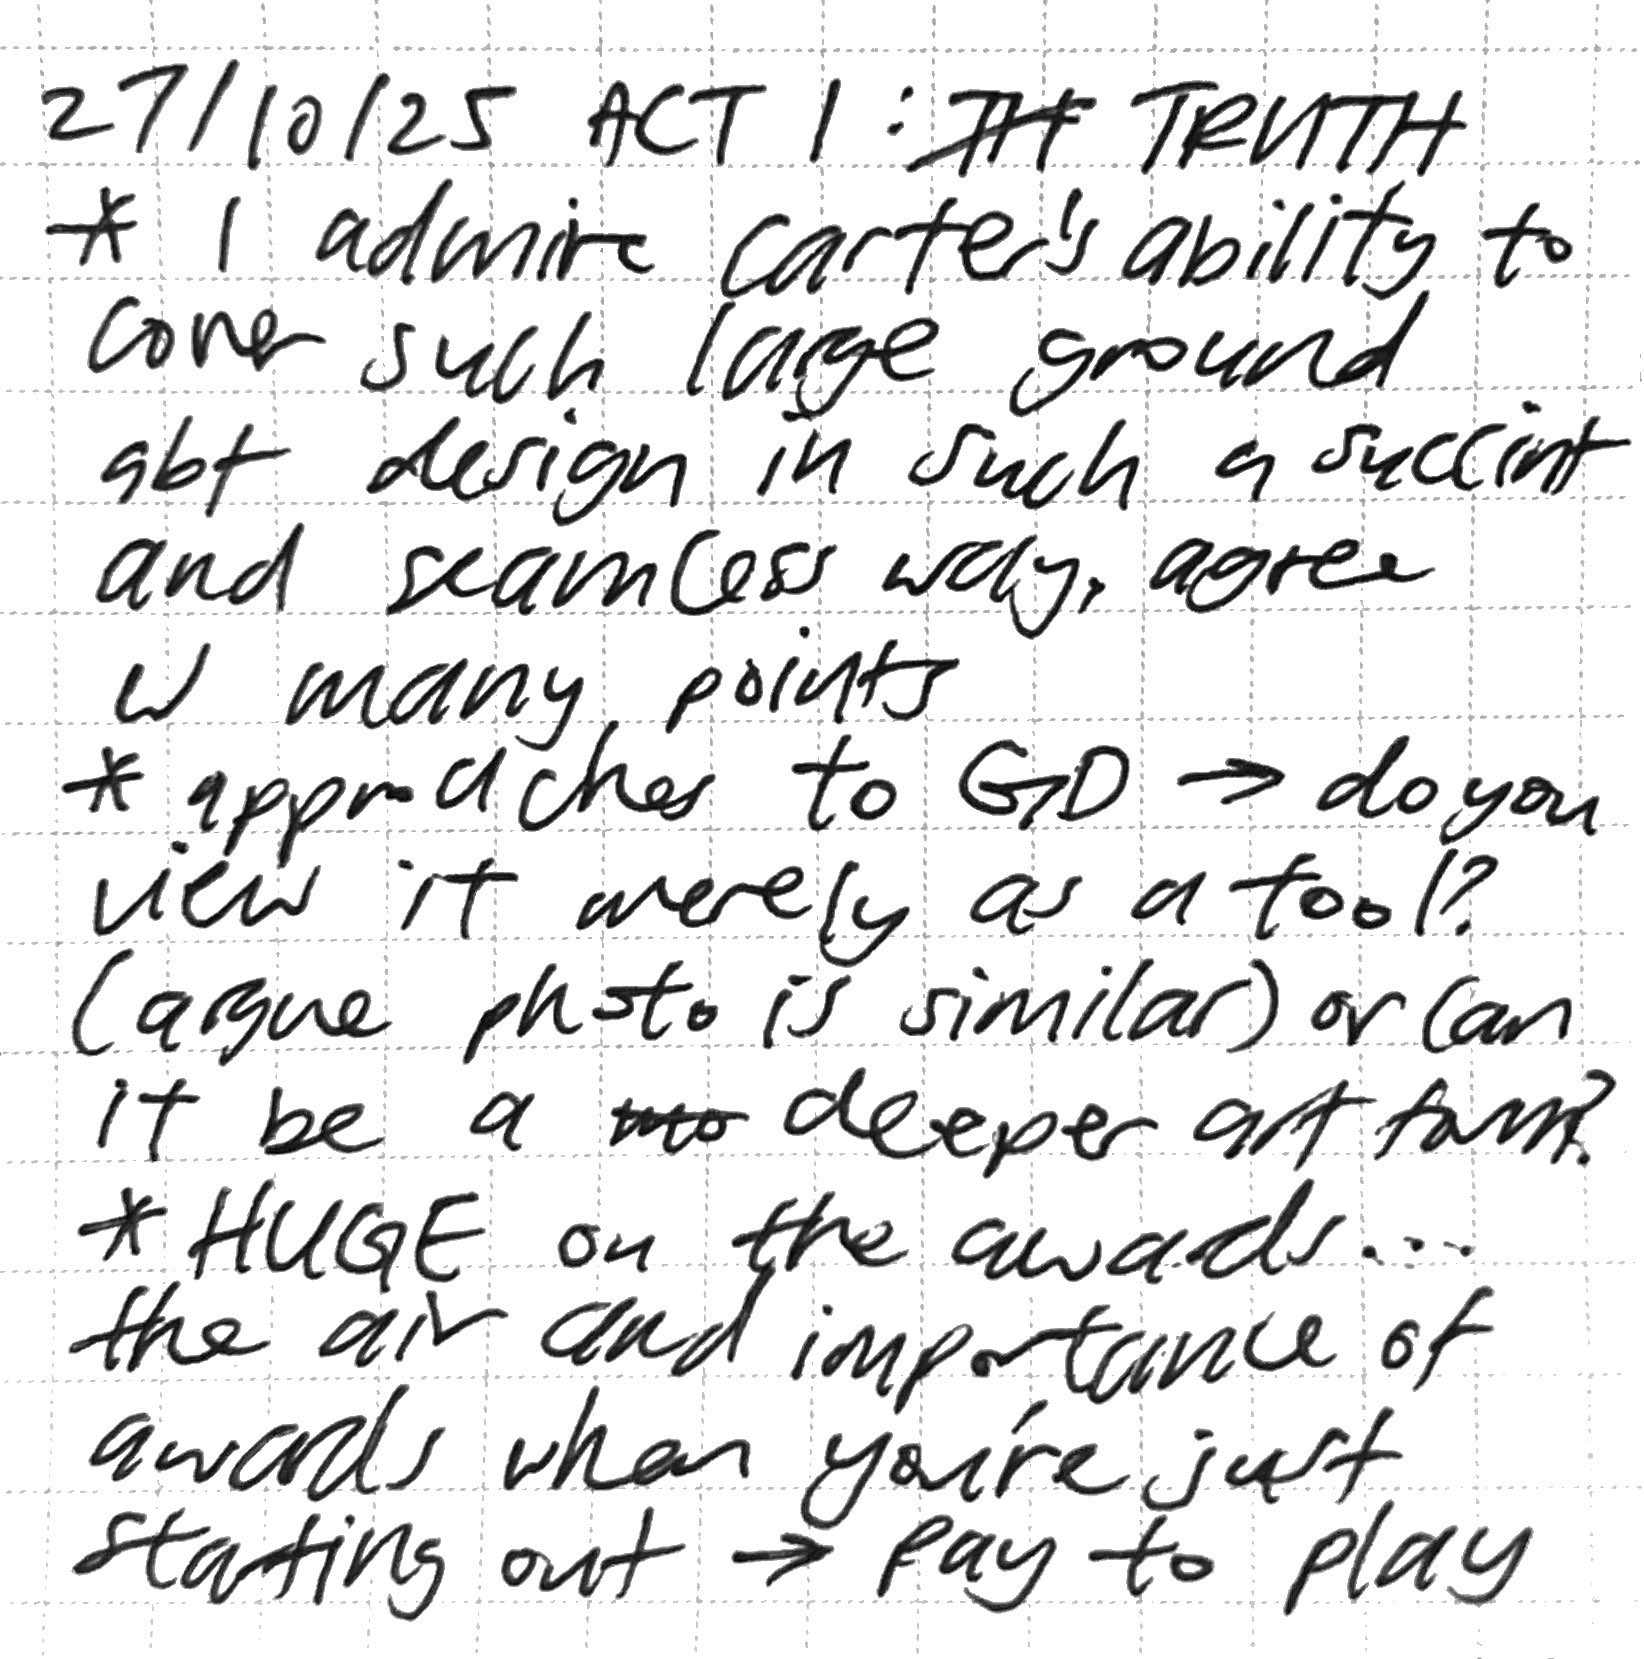 27/10/25 ACT 1: TRUTH
* I admire Carter's ability to
cover such large ground
abt design in such a succint
and seamless way, agree
w many points
* approaches to GD → do you
view it merely as a tool?
(argue photo is similar) or can
it be a deeper art form?
* HUGE on the awards...
the air and importance of
awards when you're just
starting out → pay to play